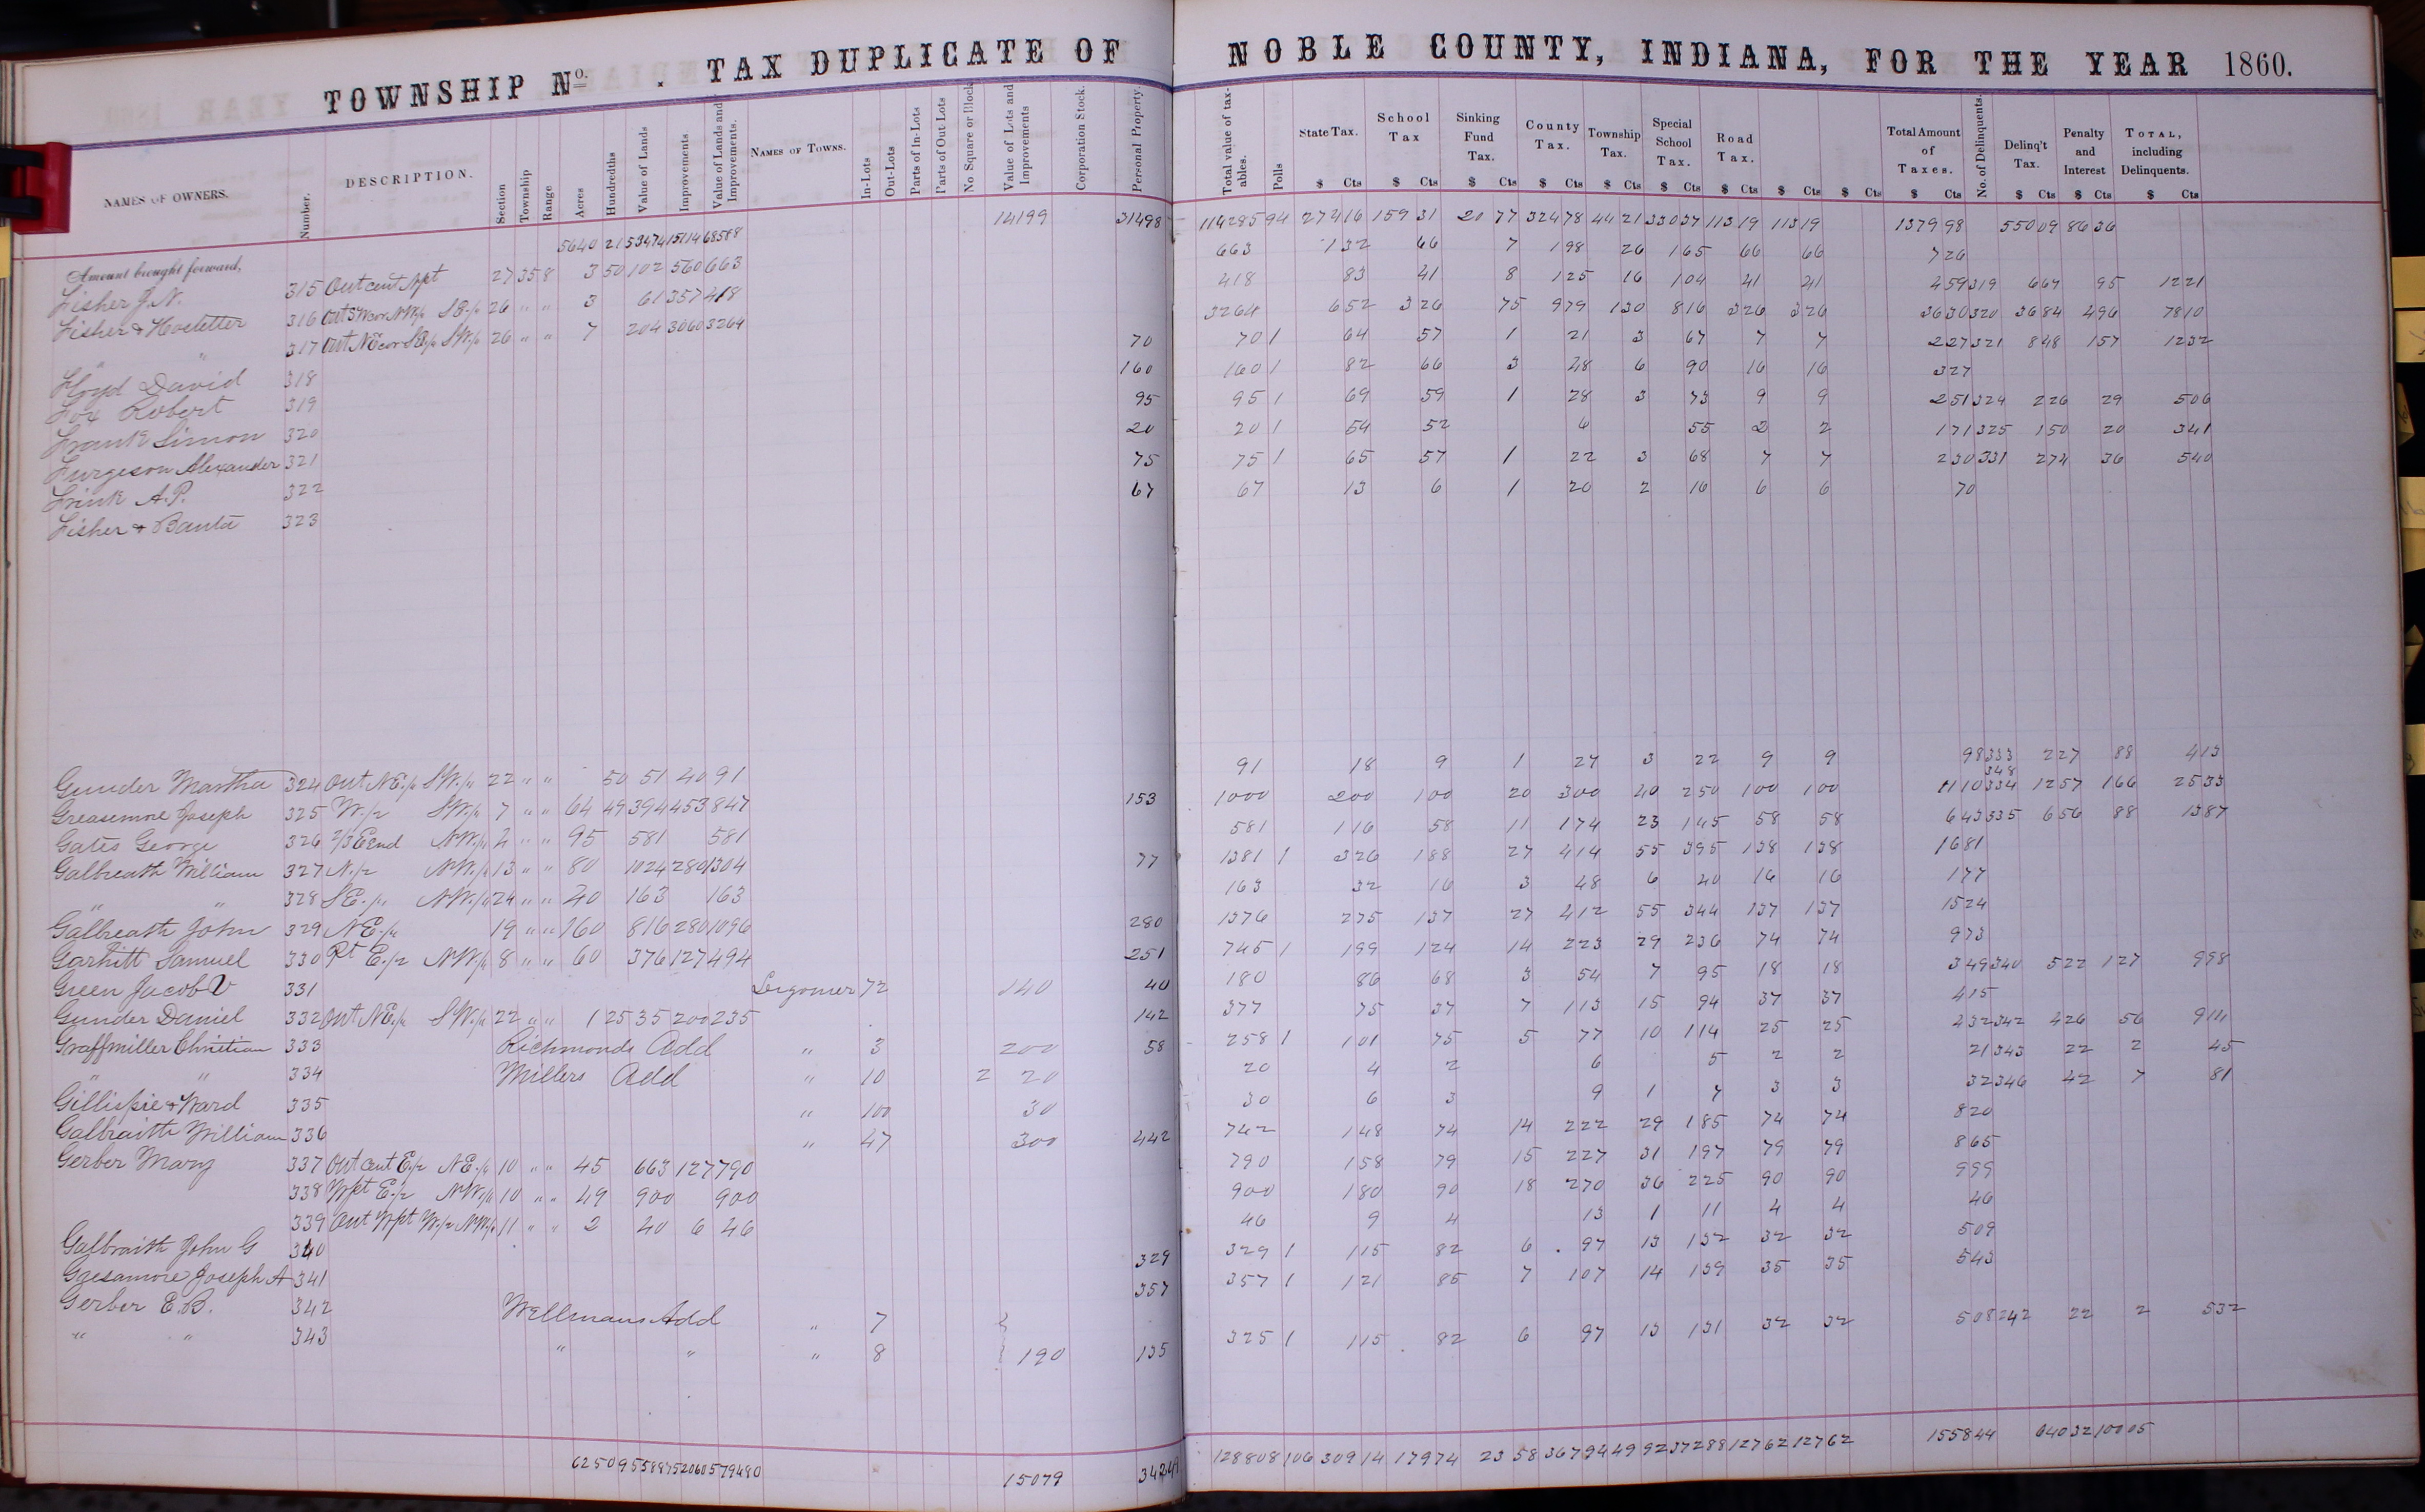 TOWNSHIP No. . TAX DUPLICATE OF NOBLE COUNTY, INDIANA, FOR THE YEAR 1860.
NAMES OF OWNERS. Number. DESCRIPTION. Section Township Range Acres Hundredths Value of Lands Improvements Value of Lands and Improvements. NAMES OF TOWNS. In-Lots Out-Lots Parts of In-Lots Parts of Out-Lots No Square or Block Value of Lots and Improvements Corporation Stock. Personal Property. Total value of taxables. Polls State Tax. School Tax Sinking Fund Tax. County Tax. Township Tax. Special School Tax. Road Tax. Total Amount of Taxes. No. of Delinquents. Delinq't Tax. Penalty and Interest TOTAL, including Delinquents.
$ Cts $ Cts $ Cts $ Cts $ Cts $ Cts $ Cts $ Cts $ Cts $ Cts $ Cts $ Cts $ Cts
Amount brought forward, 5640 21 53474 15114 68588 14199 31498 114285 94 274 16 159 31 20 77 324 78 44 21 330 37 113 19 113 19 1379 98 550 09 86 36
Fisher J. N. 315 Out cent Npt 27 35 8 3 50 102 560 663 663 1 32 66 7 1 98 26 1 65 66 66 7 26
Fisher & Hostetter 316 Out SW cor NW/4 SE/4 26 " " 3 61 357 418 418 83 41 8 1 25 16 1 04 41 41 4 59 319 6 67 95 12 21
" " 317 Out NE cor SE/4 SW/4 26 " " 7 204 3060 3264 3264 6 52 3 26 75 9 79 1 30 8 16 3 26 3 26 36 30 320 36 84 4 96 78 10
Floyd David 318 70 70 1 64 57 1 21 3 67 7 7 2 27 321 8 48 1 57 12 32
Fox Robert 319 160 160 1 82 66 3 48 6 90 16 16 3 27
Frank Simon 320 95 95 1 69 59 1 28 3 73 9 9 2 51 324 2 26 29 5 06
Furgeson Alexander 321 20 20 1 54 52 6 55 2 2 1 71 325 1 50 20 3 41
Frink A. P. 322 75 75 1 65 57 1 22 3 68 7 7 2 30 331 2 74 36 5 40
Fisher & Banta 323 67 67 13 6 1 20 2 16 6 6 70
Gunder Martha 324 Out NE/4 SW/4 22 " " 50 51 40 91 91 18 9 1 27 3 22 9 9 98 333 2 27 88 4 13
348
Greasemore Joseph 325 W/2 SW/4 7 " " 64 49 394 453 847 153 1000 2 00 1 00 20 3 00 40 2 50 1 00 1 00 11 10 334 12 57 1 66 25 33
Gates George 326 2/3 E end NW/4 2 " " 95 581 581 581 1 16 58 11 1 74 23 1 45 58 58 6 43 335 6 56 88 13 87
Galbreath William 327 N/2 NW/4 13 " " 80 1024 280 1304 77 1381 1 3 26 1 88 27 4 14 55 3 95 1 38 1 38 16 81
" " 328 SE/4 NW/4 24 " " 40 163 163 163 32 16 3 48 6 40 16 16 1 77
Galbreath John 329 NE/4 19 " " 160 816 280 1096 280 1376 2 75 1 37 27 4 12 55 3 44 1 37 1 37 15 24
Garhitt Samuel 330 Pt E/2 NW/4 8 " " 60 376 127 494 251 745 1 1 99 1 24 14 2 23 29 2 36 74 74 9 73
Green Jacob V 331 Ligonier 72 140 40 180 86 68 3 54 7 95 18 18 3 49 340 5 22 1 27 9 98
Gunder Daniel 332 Out NE/4 SW/4 22 " " 1 25 35 200 235 142 377 75 37 7 1 13 15 94 37 37 4 15
Graffmiller Christian 333 Richmonds Add " 3 200 58 258 1 1 01 75 5 77 10 1 14 25 25 4 32 342 4 26 56 9 14
" " 334 Millers Add " 10 2 20 20 4 2 6 5 2 2 21 343 22 2 45
Gillispie & Ward 335 " 100 30 30 6 3 9 1 7 3 3 32 346 42 7 81
Galbraith William 336 " 47 300 442 742 1 48 74 14 2 22 29 1 85 74 74 8 20
Gerber Mary 337 Out cent E/2 NE/4 10 " " 45 663 127 790 790 1 58 79 15 2 27 31 1 97 79 79 8 65
338 Wpt E/2 NW/4 10 " " 49 900 900 900 1 80 90 18 2 70 36 2 25 90 90 9 99
339 Out Wpt W/2 NW/4 11 " " 2 40 6 46 46 9 4 13 1 11 4 4 46
Galbraith John G 340 329 329 1 1 15 82 6 97 13 1 32 32 32 5 09
Gresamore Joseph A 341 357 357 1 1 21 85 7 1 07 14 1 39 35 35 5 43
Gerber E. B. 342 Wellmans Add " 7
" " 343 " " " 8 190 135 325 1 1 15 82 6 97 13 1 31 32 32 5 08 242 22 2 5 32
6250 95 58875 20605 79480 15079 34249 128808 106 309 14 179 74 23 58 367 94 49 92 372 88 127 62 127 62 1558 44 640 32 100 05